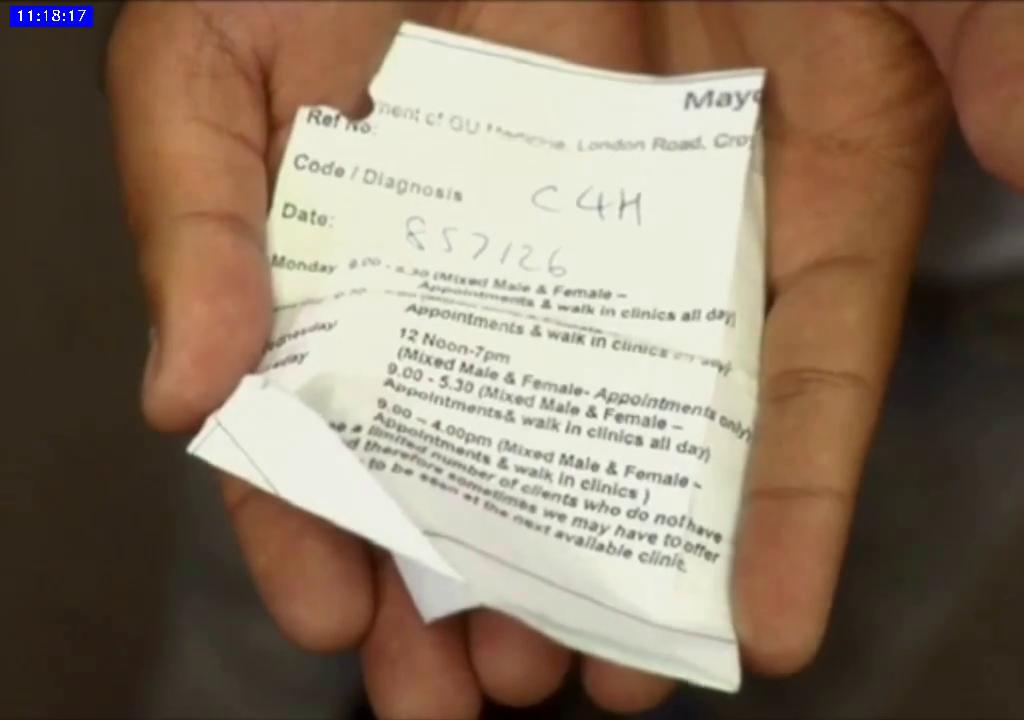 11:18:17
May
ment of GU Medicine, London Road, Cro
Ref No:
Code / Diagnosis C4H
Date: 857126
Monday 9.00 - 5.30 (Mixed Male & Female –
Appointments & walk in clinics all day)
Appointments & walk in clinics all day)
12 Noon-7pm
(Mixed Male & Female- Appointments only)
9.00 - 5.30 (Mixed Male & Female –
Appointments& walk in clinics all day)
9.00 – 4.00pm (Mixed Male & Female -
Appointments & walk in clinics )
a limited number of clients who do not have
d therefore sometimes we may have to offer
to be seen at the next available clinic.